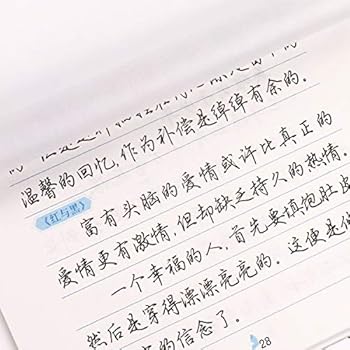 温馨的回忆,作为补偿是绰绰有余的。
《红与黑》
富有头脑的爱情或许比真正的
爱情更有激情,但却缺乏持久的热情。
一个幸福的人,首先要填饱肚皮
然后是穿得漂漂亮亮的。这便是他
的信念了。
28